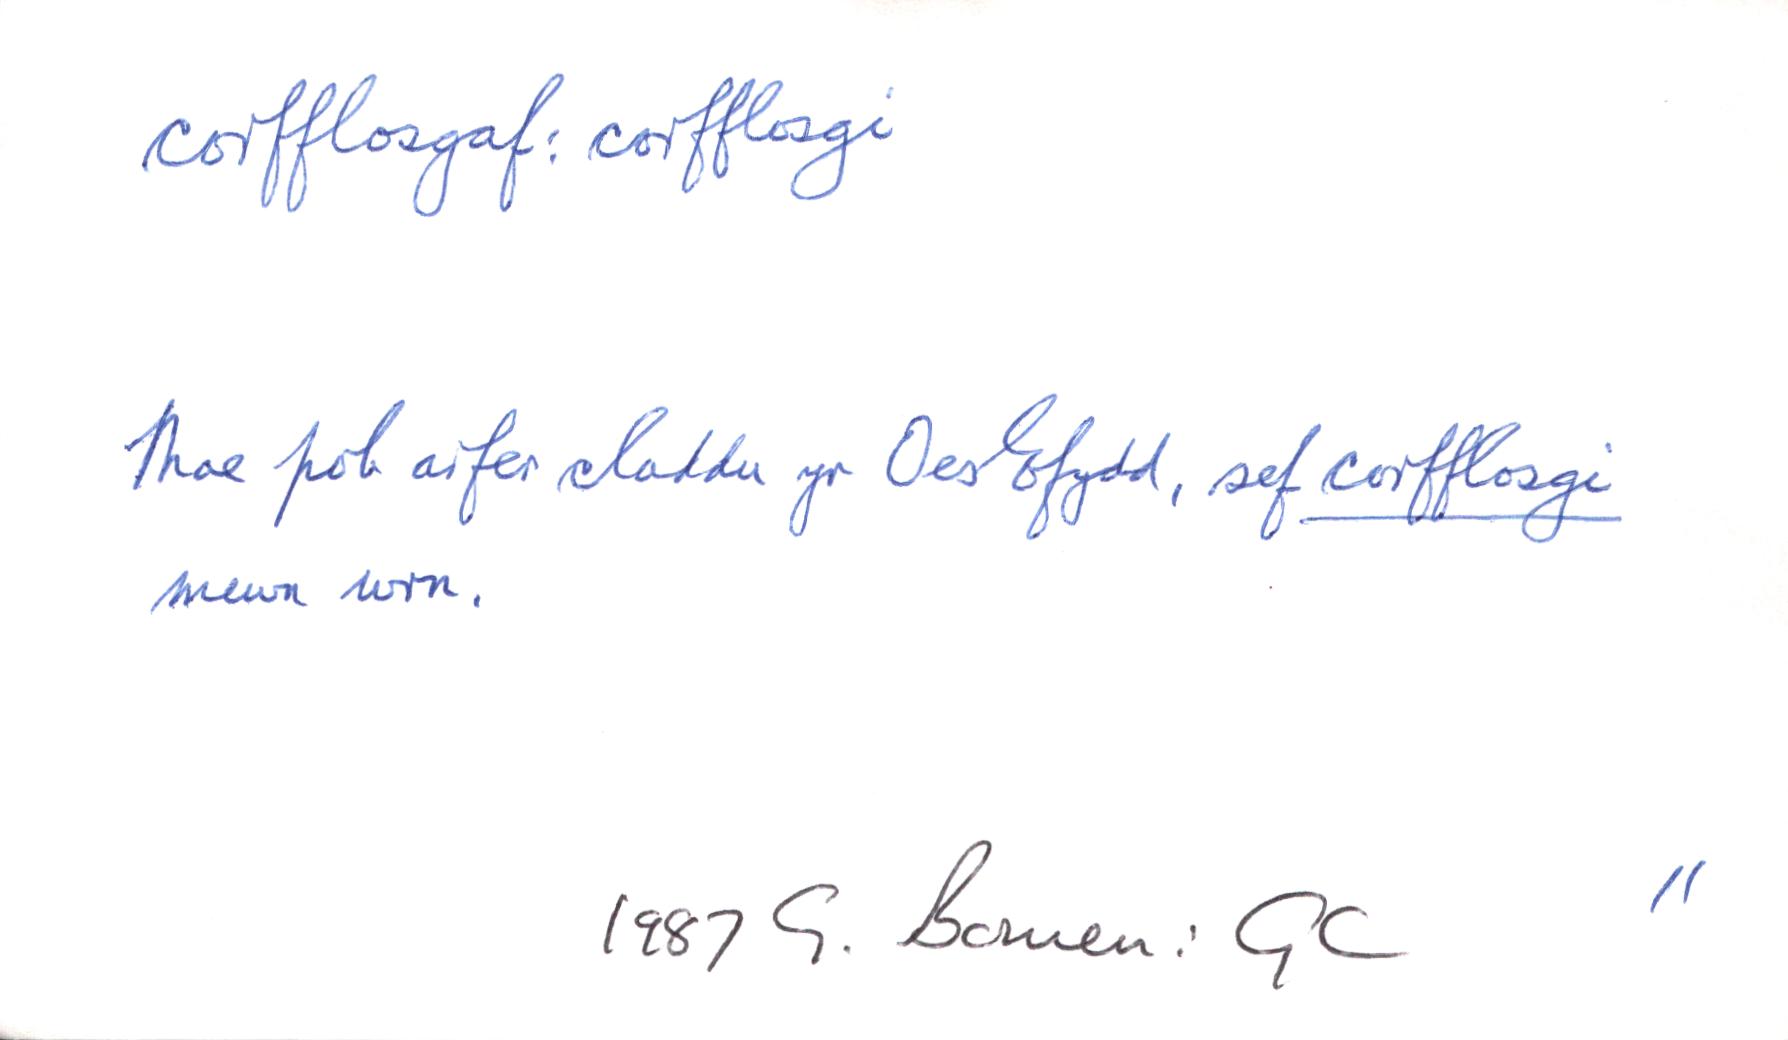 corfflosgaf: corfflosgi
Mae pob arfer claddu yr Oes Efydd, sef corfflosgi
mewn wrn.
1987 G. Bowen: GC 11